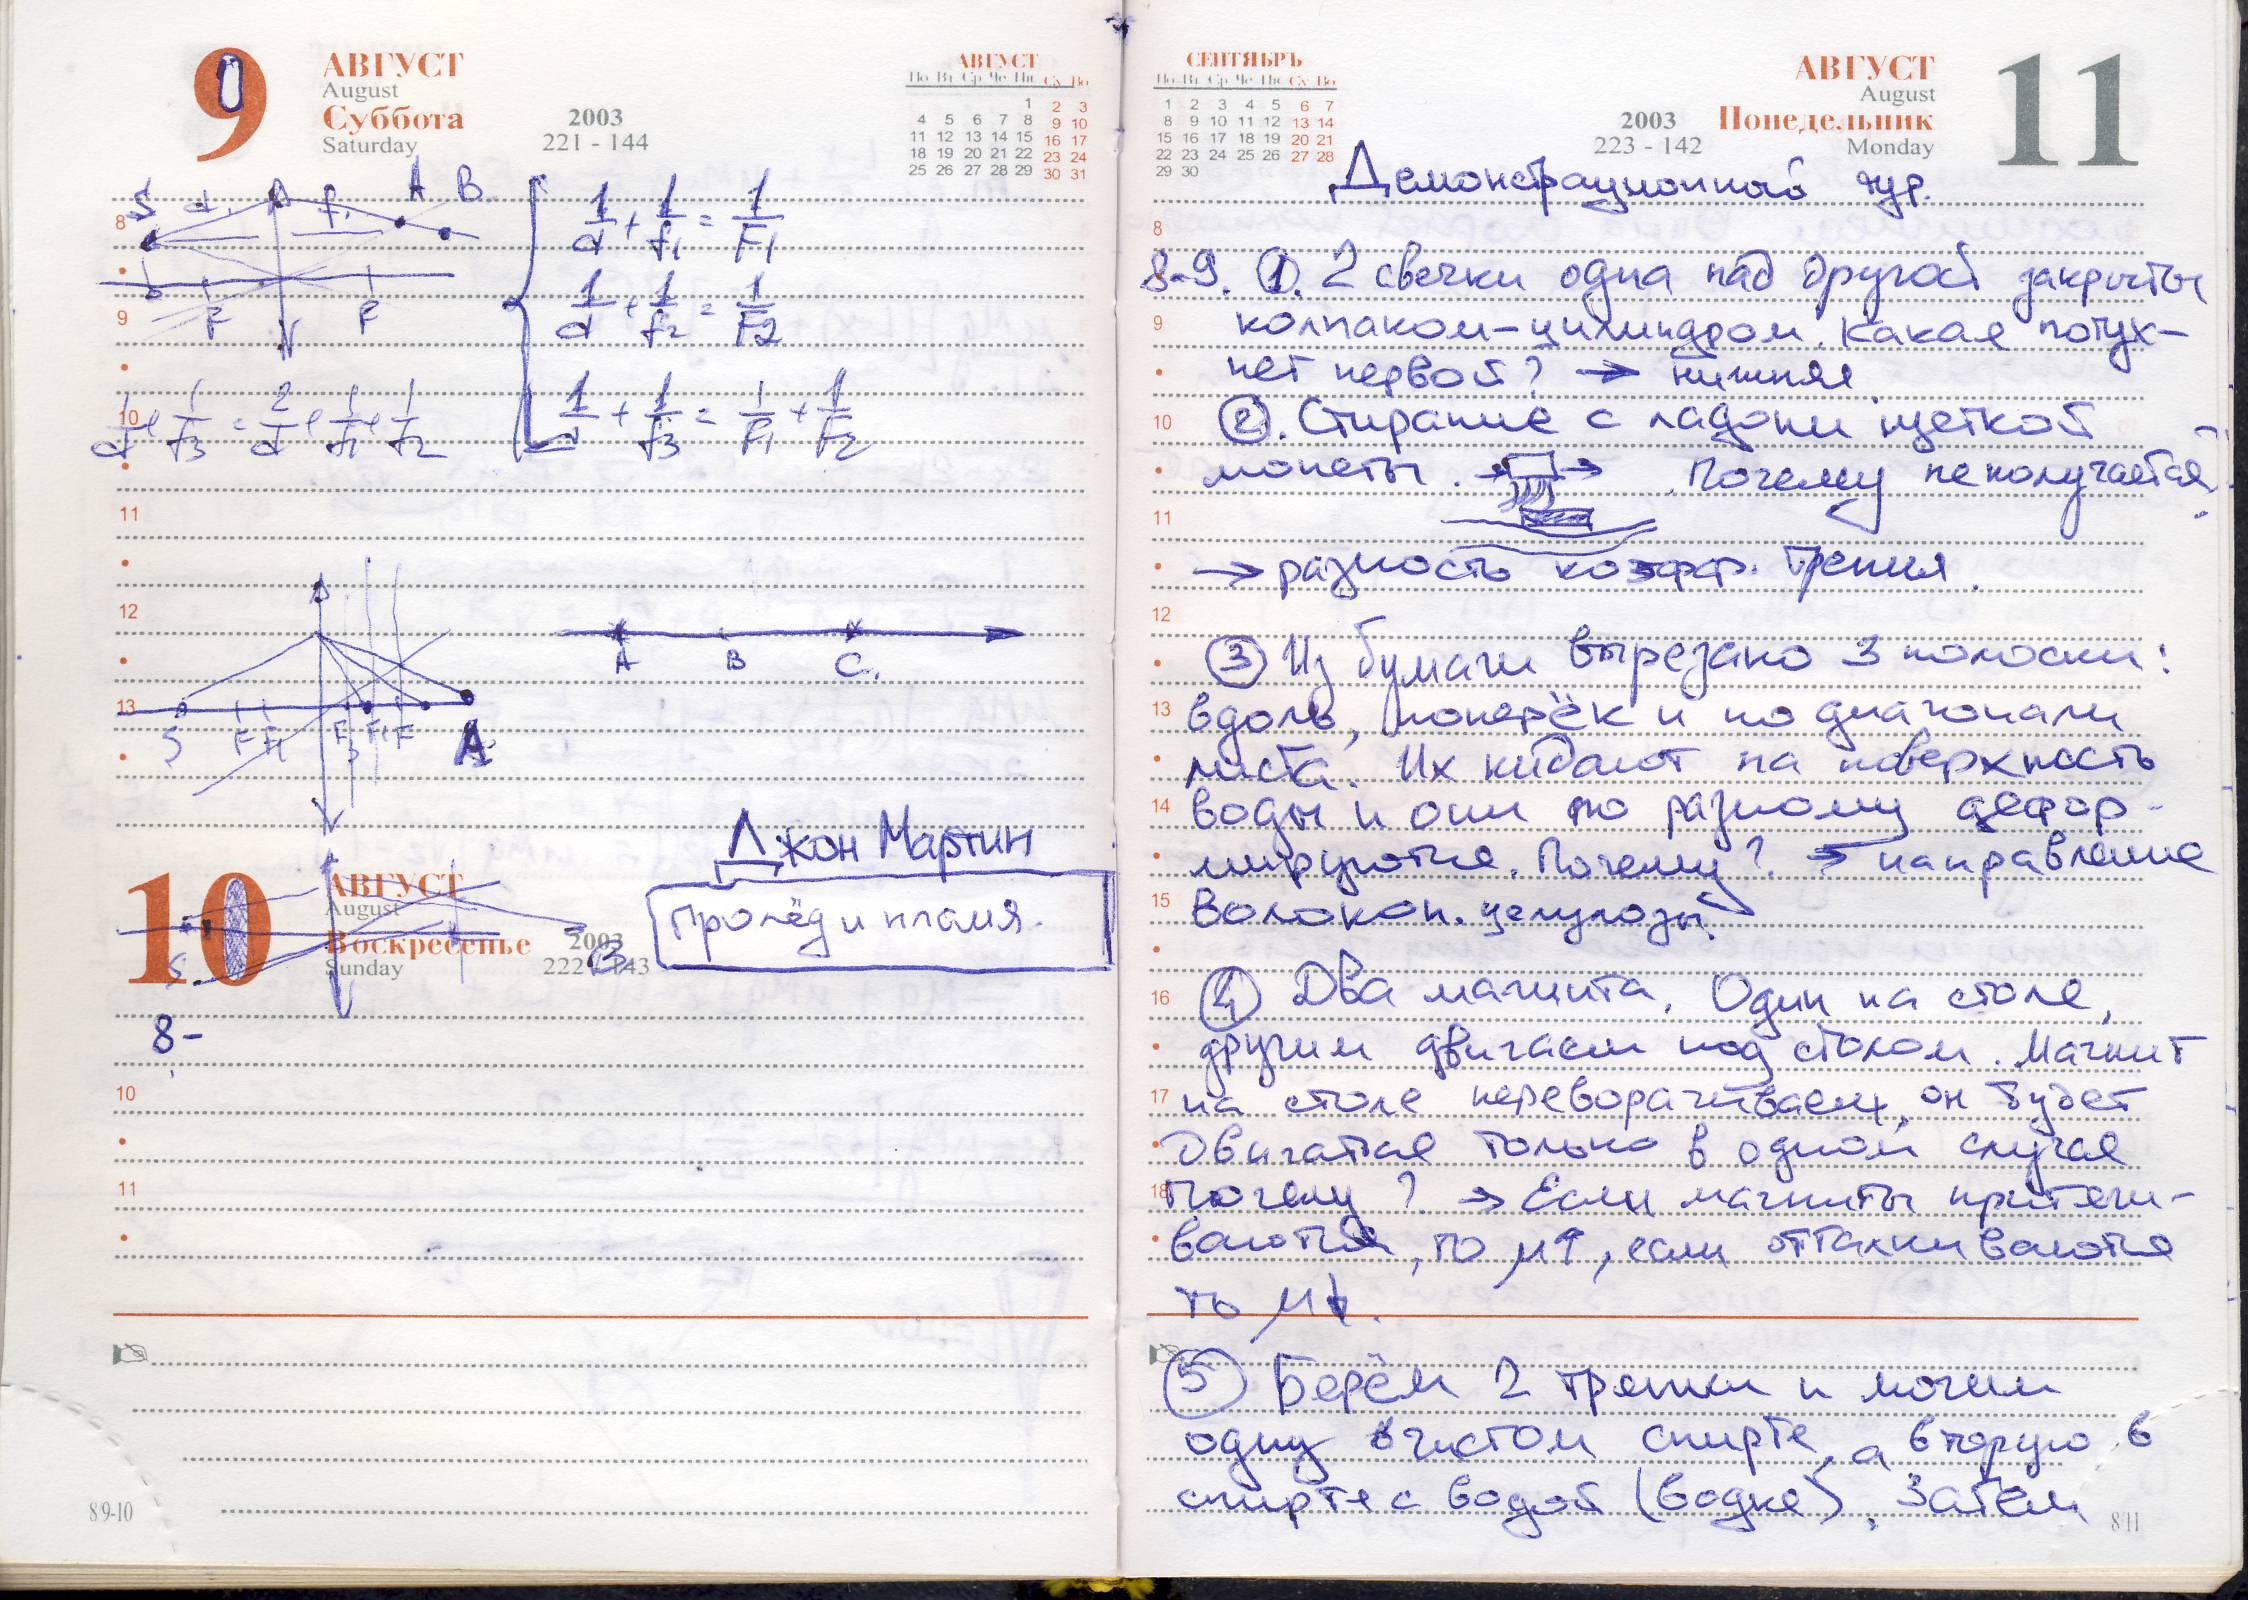 9
АВГУСТ
August
Суббота
Saturday
2003
221 - 144
АВГУСТ
По Вт Ср Че Пт Су Во
1 2 3
4 5 6 7 8 9 10
11 12 13 14 15 16 17
18 19 20 21 22 23 24
25 26 27 28 29 30 31
S d f₁ A B
F F
1/d + 1/f₁ = 1/F1
1/d + 1/f₂ = 1/F2
1/d + 1/f3 = 1/F1 + 1/F2
1/d + 1/f3 = 2/d + 1/f1 + 1/f2
8
9
10
11
12
13
A B C.
S F F1 F3 F1 F A
Джон Мартин
Про лёд и пламя.
10
АВГУСТ
August
Воскресенье
Sunday
2003
222 - 143
S B
8-
10
11
8/9-10
СЕНТЯБРЬ
По Вт Ср Че Пт Су Во
1 2 3 4 5 6 7
8 9 10 11 12 13 14
15 16 17 18 19 20 21
22 23 24 25 26 27 28
29 30
2003
223 - 142
АВГУСТ
August
Понедельник
Monday
11
Демонстрационный тур.
8
8-9. ①. 2 свечки одна над другой закрыты
9
колпаком-цилиндром. Какая потух-
нет первой? → нижняя
10
②. Стирание с ладони щеткой
монеты. Почему не получается?
11
→ разность коэфф. трения.
12
③ Из бумаги вырезано 3 полоски:
13
вдоль, поперёк и по диагонали
листа. Их кидают на поверхность
14
воды и они по разному дефор-
мируются. Почему? → направление
15
волокон. целулозы.
16
④ Два магнита. Один на столе,
другим двигаем под столом. Магнит
17
на столе переворачиваем, он будет
двигаться только в одном случае
18
Почему? → Если магниты притяги-
ваются, то μ↑, если отталкиваются
то μ↓.
⑤ Берём 2 тряпки и мочим
одну в чистом спирте, а вторую в
спирте с водой (водке), Затем
8/11